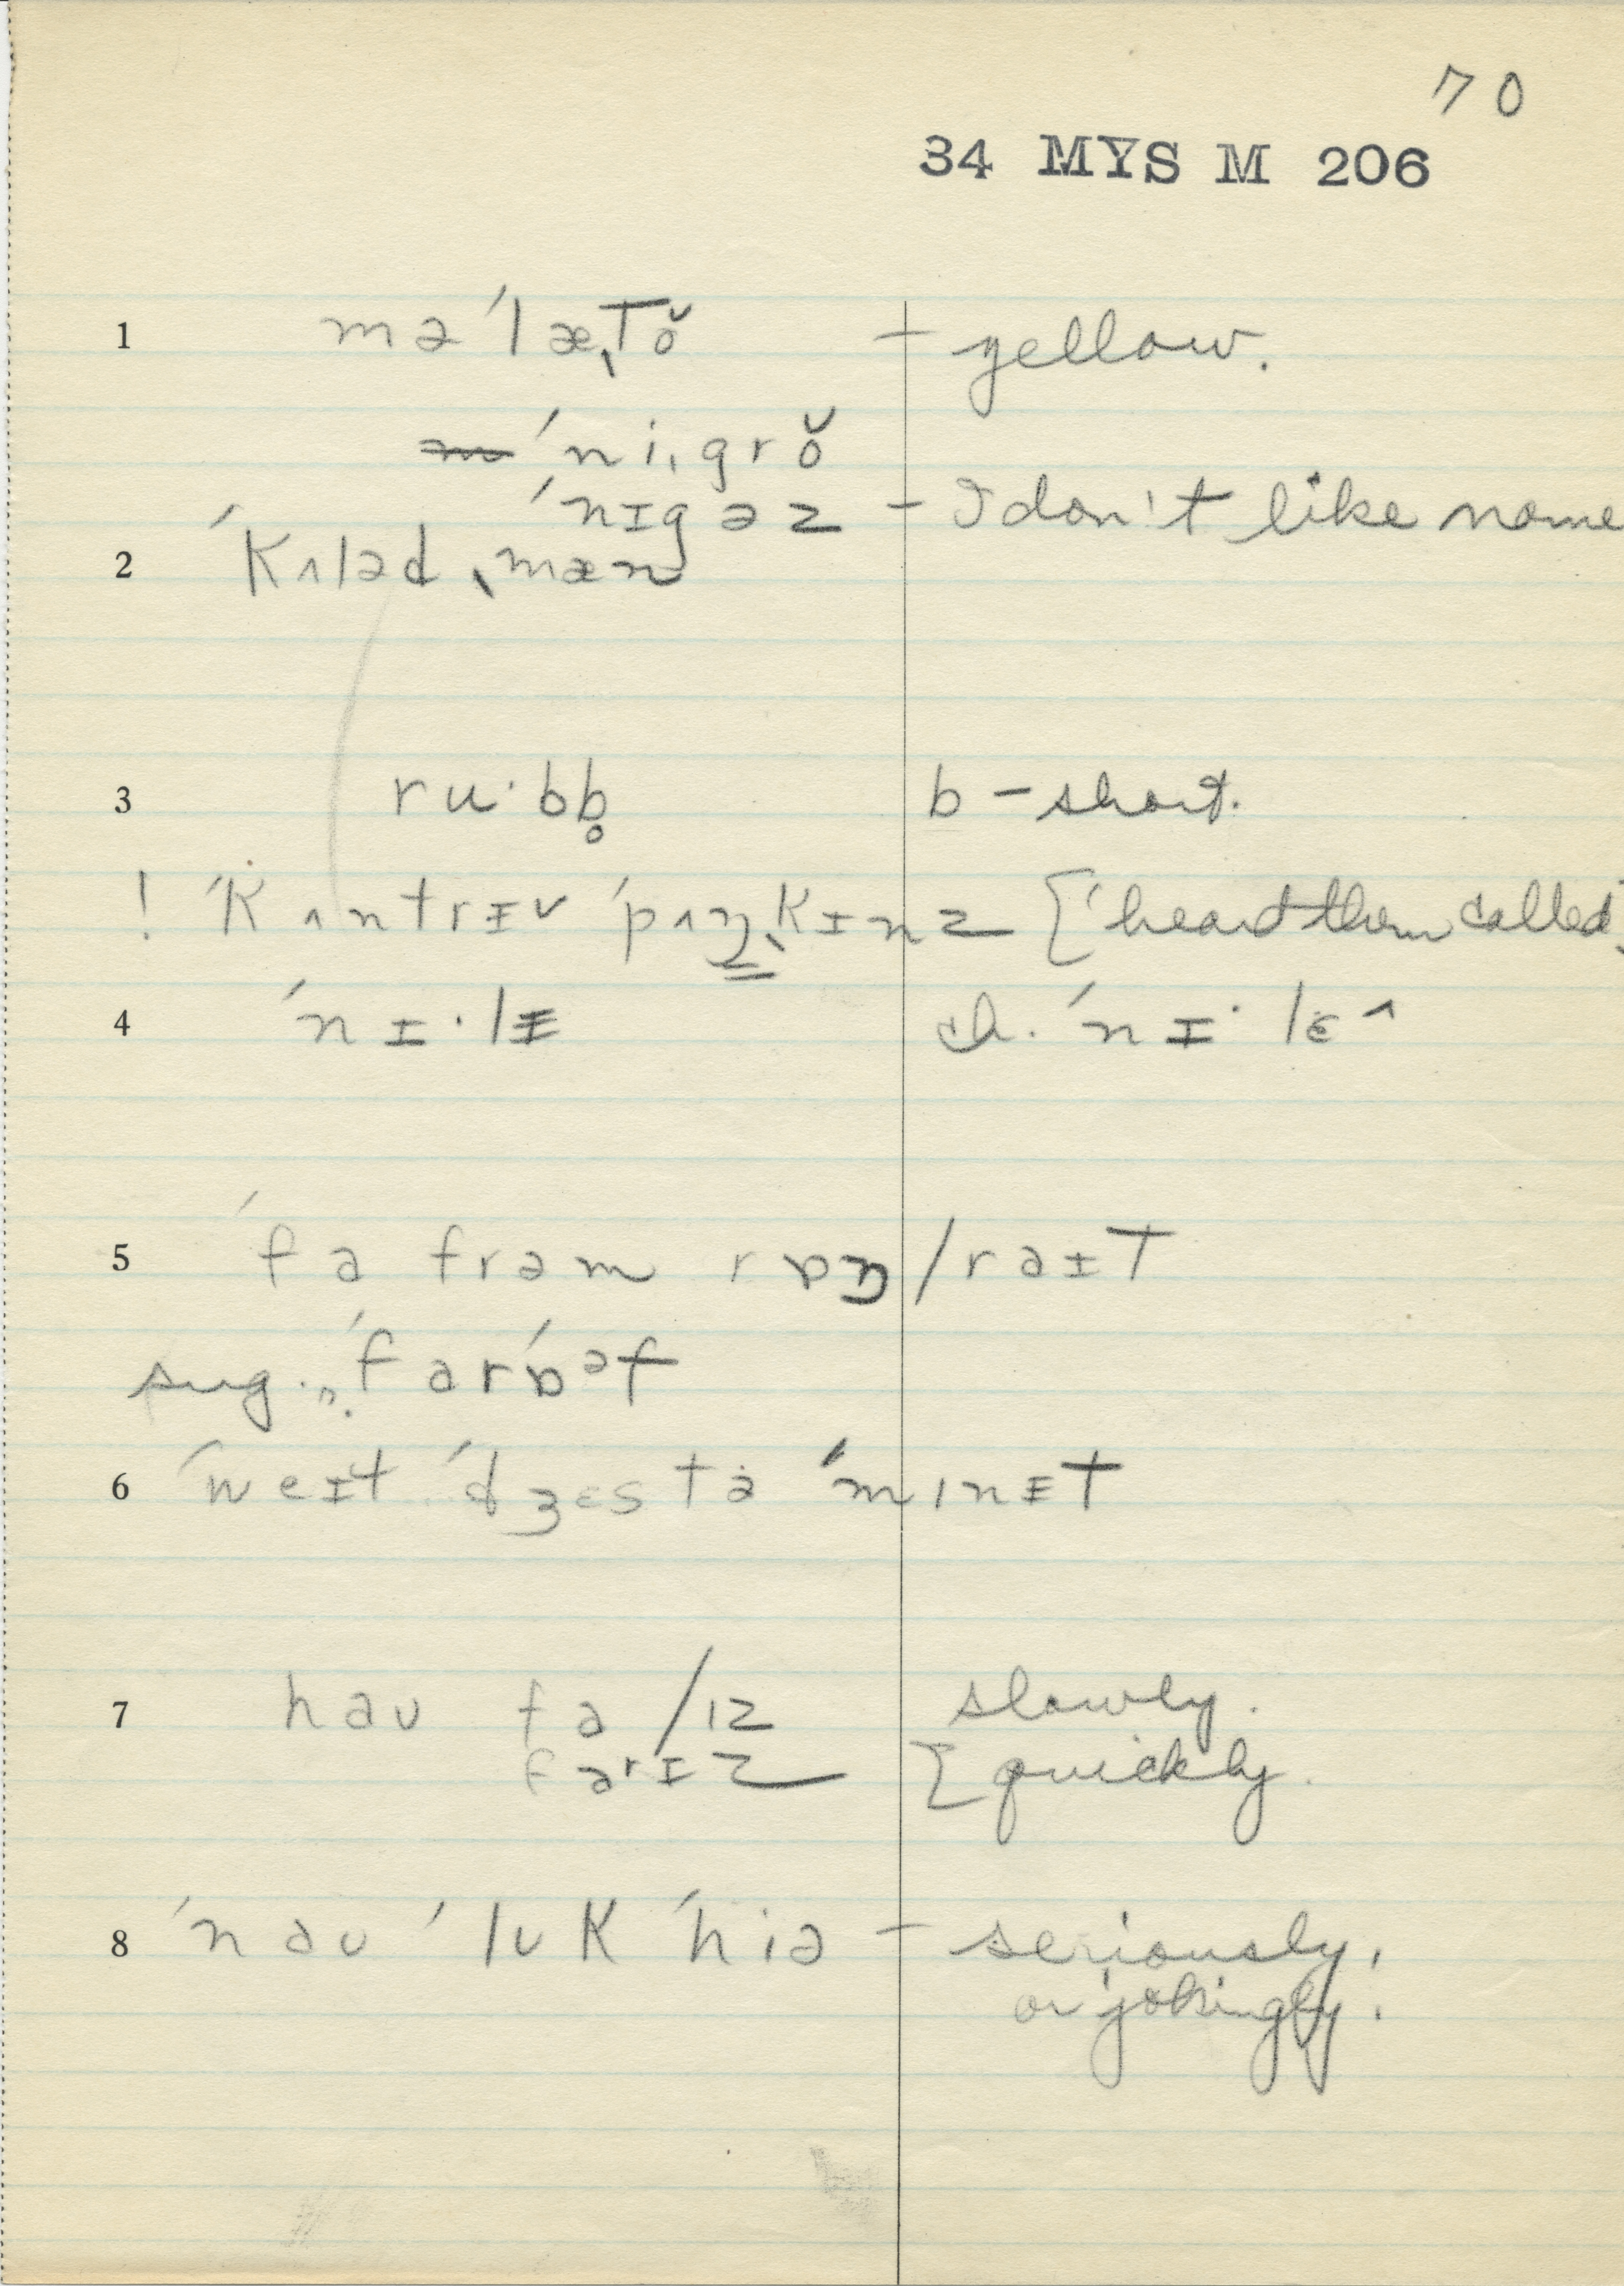 70
34 MYS M 206
1 mə ˈlæˌtŏ – yellow.
ˈniˌgrŏ
ˈnɪgəz – I don't like name
2 ˈkʌləd ˌmæn
3 ru·bb̥ b – short.
! ˈkʌntrɪv ˈpʌŋˌkɪnz [heard them called]
4 ˈnɪ·lɪ ch. ˈnɪ·lɛ^
5 ˈfa fram rɒŋ/raɪt
sug. ˈfarˈɒᵊf
6 ˈweɪt ˈdʒɛs tə ˈmɪnɪt
7 hau fa/ɪz slowly.
farɪz [quickly.
8 ˈnaʊ ˈlʊk ˈhiə – seriously,
or jokingly.